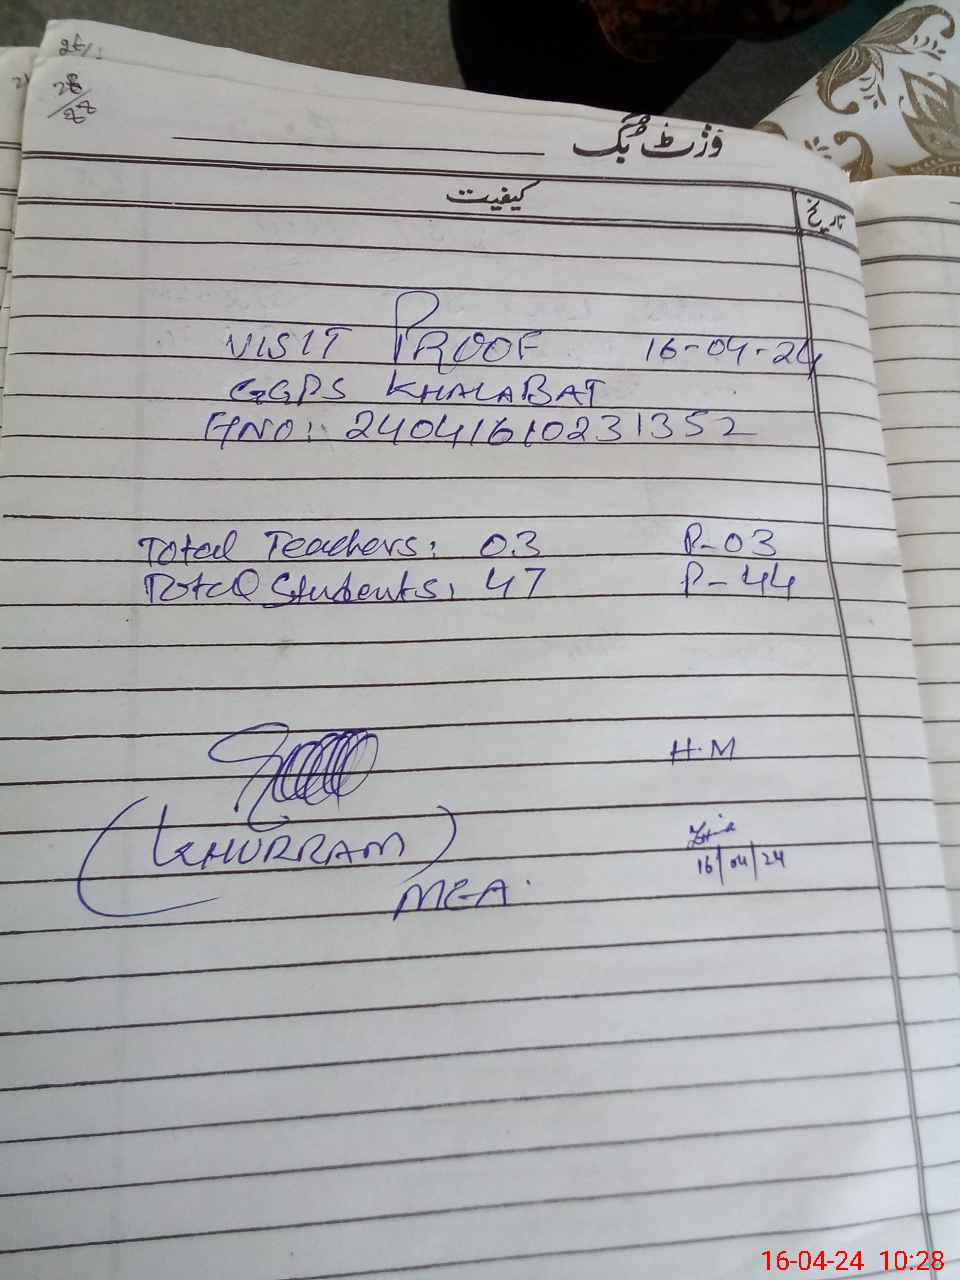 28
88
وزٹ بک
کیفیت تاریخ
VISIT PROOF 16-04-24
GGPS KHALABAT
ANO: 24041610231352
Total Teachers: 03 P-03
Total Students: 47 P-44
H.M
(KHURRAM)
16/04/24
MEA.
16-04-24 10:28